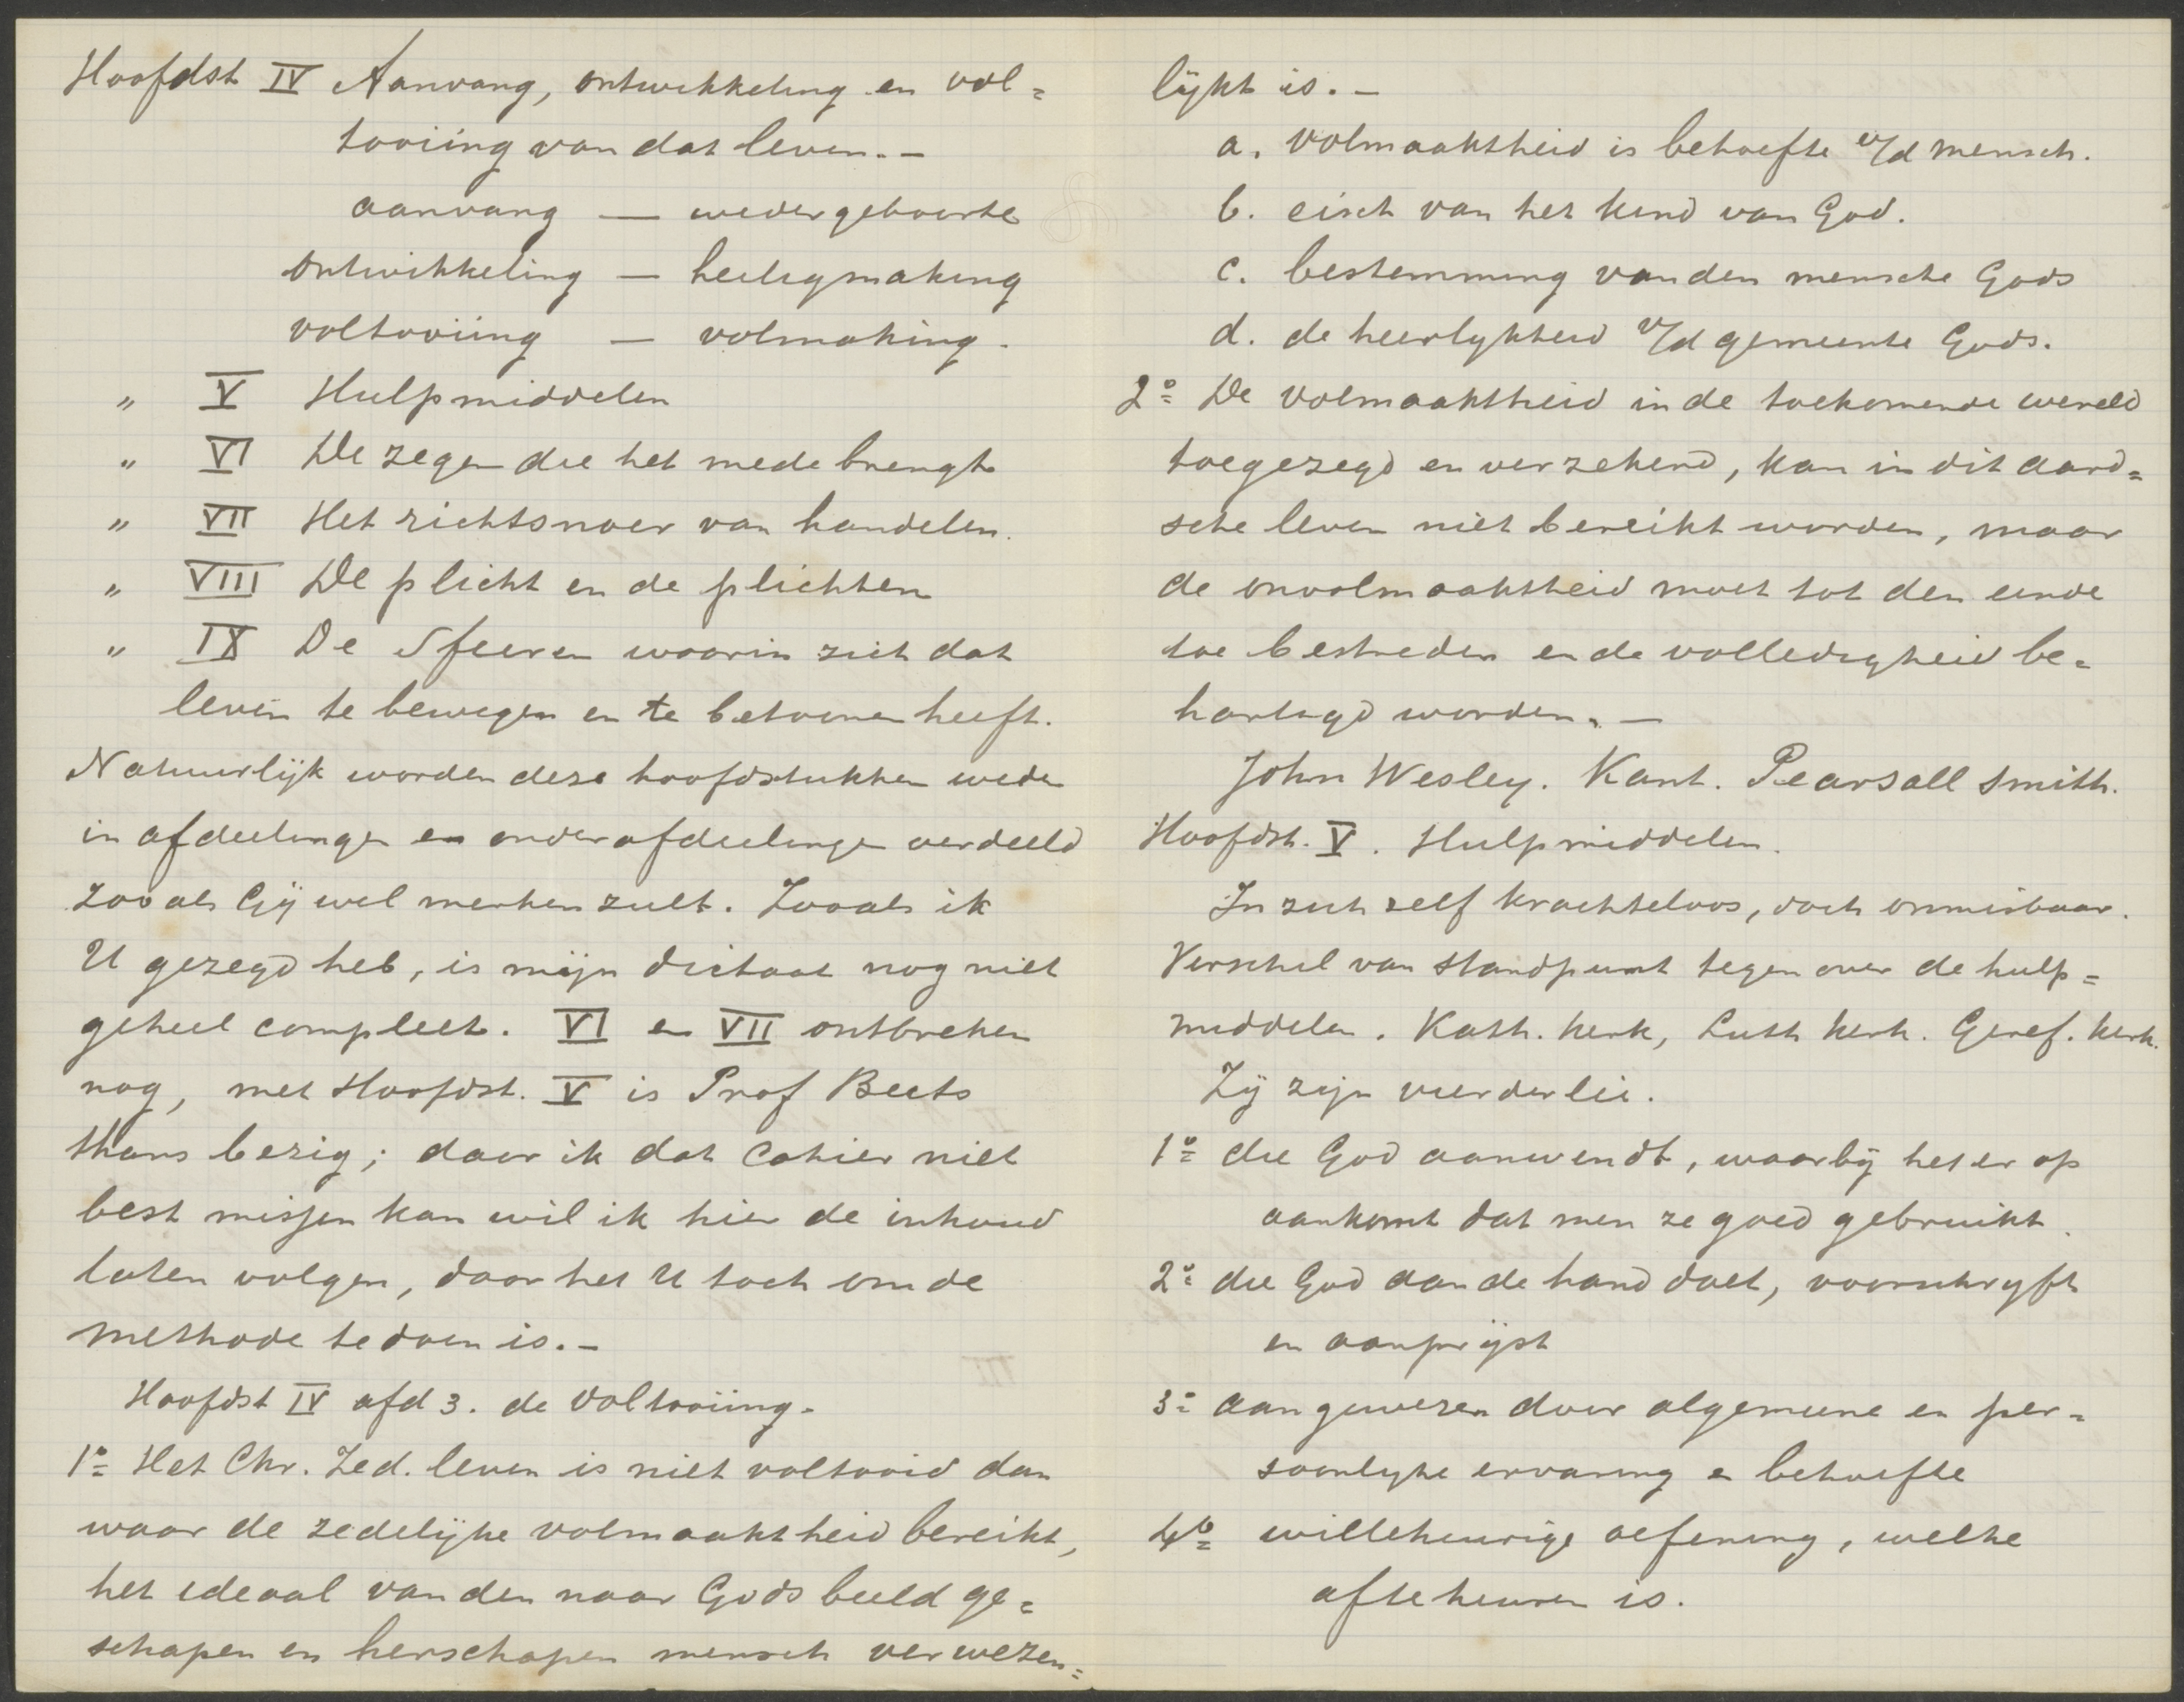 Hoofdst IV Aanvang, ontwikkeling en vol=
tooiing van dat leven.–
aanvang — wedergeboorte
ontwikkeling — heiligmaking
voltooiing — volmaking.
" V Hulpmiddelen
" VI De zegen die het mede brengt
" VII Het richtsnoer van handelen.
" VIII De plicht en de plichten
" IX De Sfeeren waarin zich dat
leven te bewegen en te betoonen heeft.
Natuurlijk worden deze hoofdstukken weder
in afdeelingen en onderafdeelingen verdeeld
zooals Gij wel merken zult. Zooals ik
U gezegd heb, is mijn dictaat nog niet
geheel compleet. VI en VII ontbreken
nog, met Hoofdst. V is Prof Beets
thans bezig; daar ik dat Cahier niet
best missen kan wil ik hier de inhoud
laten volgen, daar het U toch om de
methode te doen is.–
Hoofdst IV afd 3. de Voltooiing.
1o Het Chr. Zed. leven is niet voltooid dan
waar de zedelijke volmaaktheid bereikt,
het ideaal van den naar Gods beeld ge=
schapen en herschapen mensch verwezen=
lijkt is.–
a. Volmaaktheid is behoefte v/d mensch.
b. eisch van het kind van God.
c. bestemming van den mensche Gods
d. de heerlykheid v/d gemeente Gods.
2o De volmaaktheid in de toekomende wereld
toegezegd en verzekerd, kan in dit aard=
sche leven niet bereikt worden, maar
de onvolmaaktheid moet tot den einde
toe bestreden en de volledigheid be=
hartigd worden.–
John Wesley. Kant. Pearsall Smith.
Hoofdst. V. Hulpmiddelen.
In zich zelf krachteloos, doch onmisbaar.
Verschil van standpunt tegen over de hulp=
middelen. Kath. kerk, Luth kerk. Geref. kerk.
Zij zijn vierderlei.
1o die God aanwendt, waarbij het er op
aankomt dat men ze goed gebruikt.
2o die God aan de hand doet, voorschryft
en aanprijst
3o aangewezen door algemeene en per=
soonlyke ervaring en behoefte
4o willekeurige oefening, welke
afte keuren is.